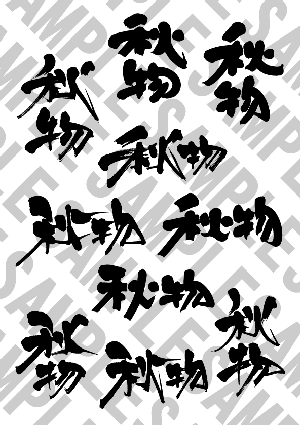 秋物
秋物
秋物
秋物
秋物
秋物
秋物
秋物
秋物
秋物
SAMPLE SAMPLE SAMPLE